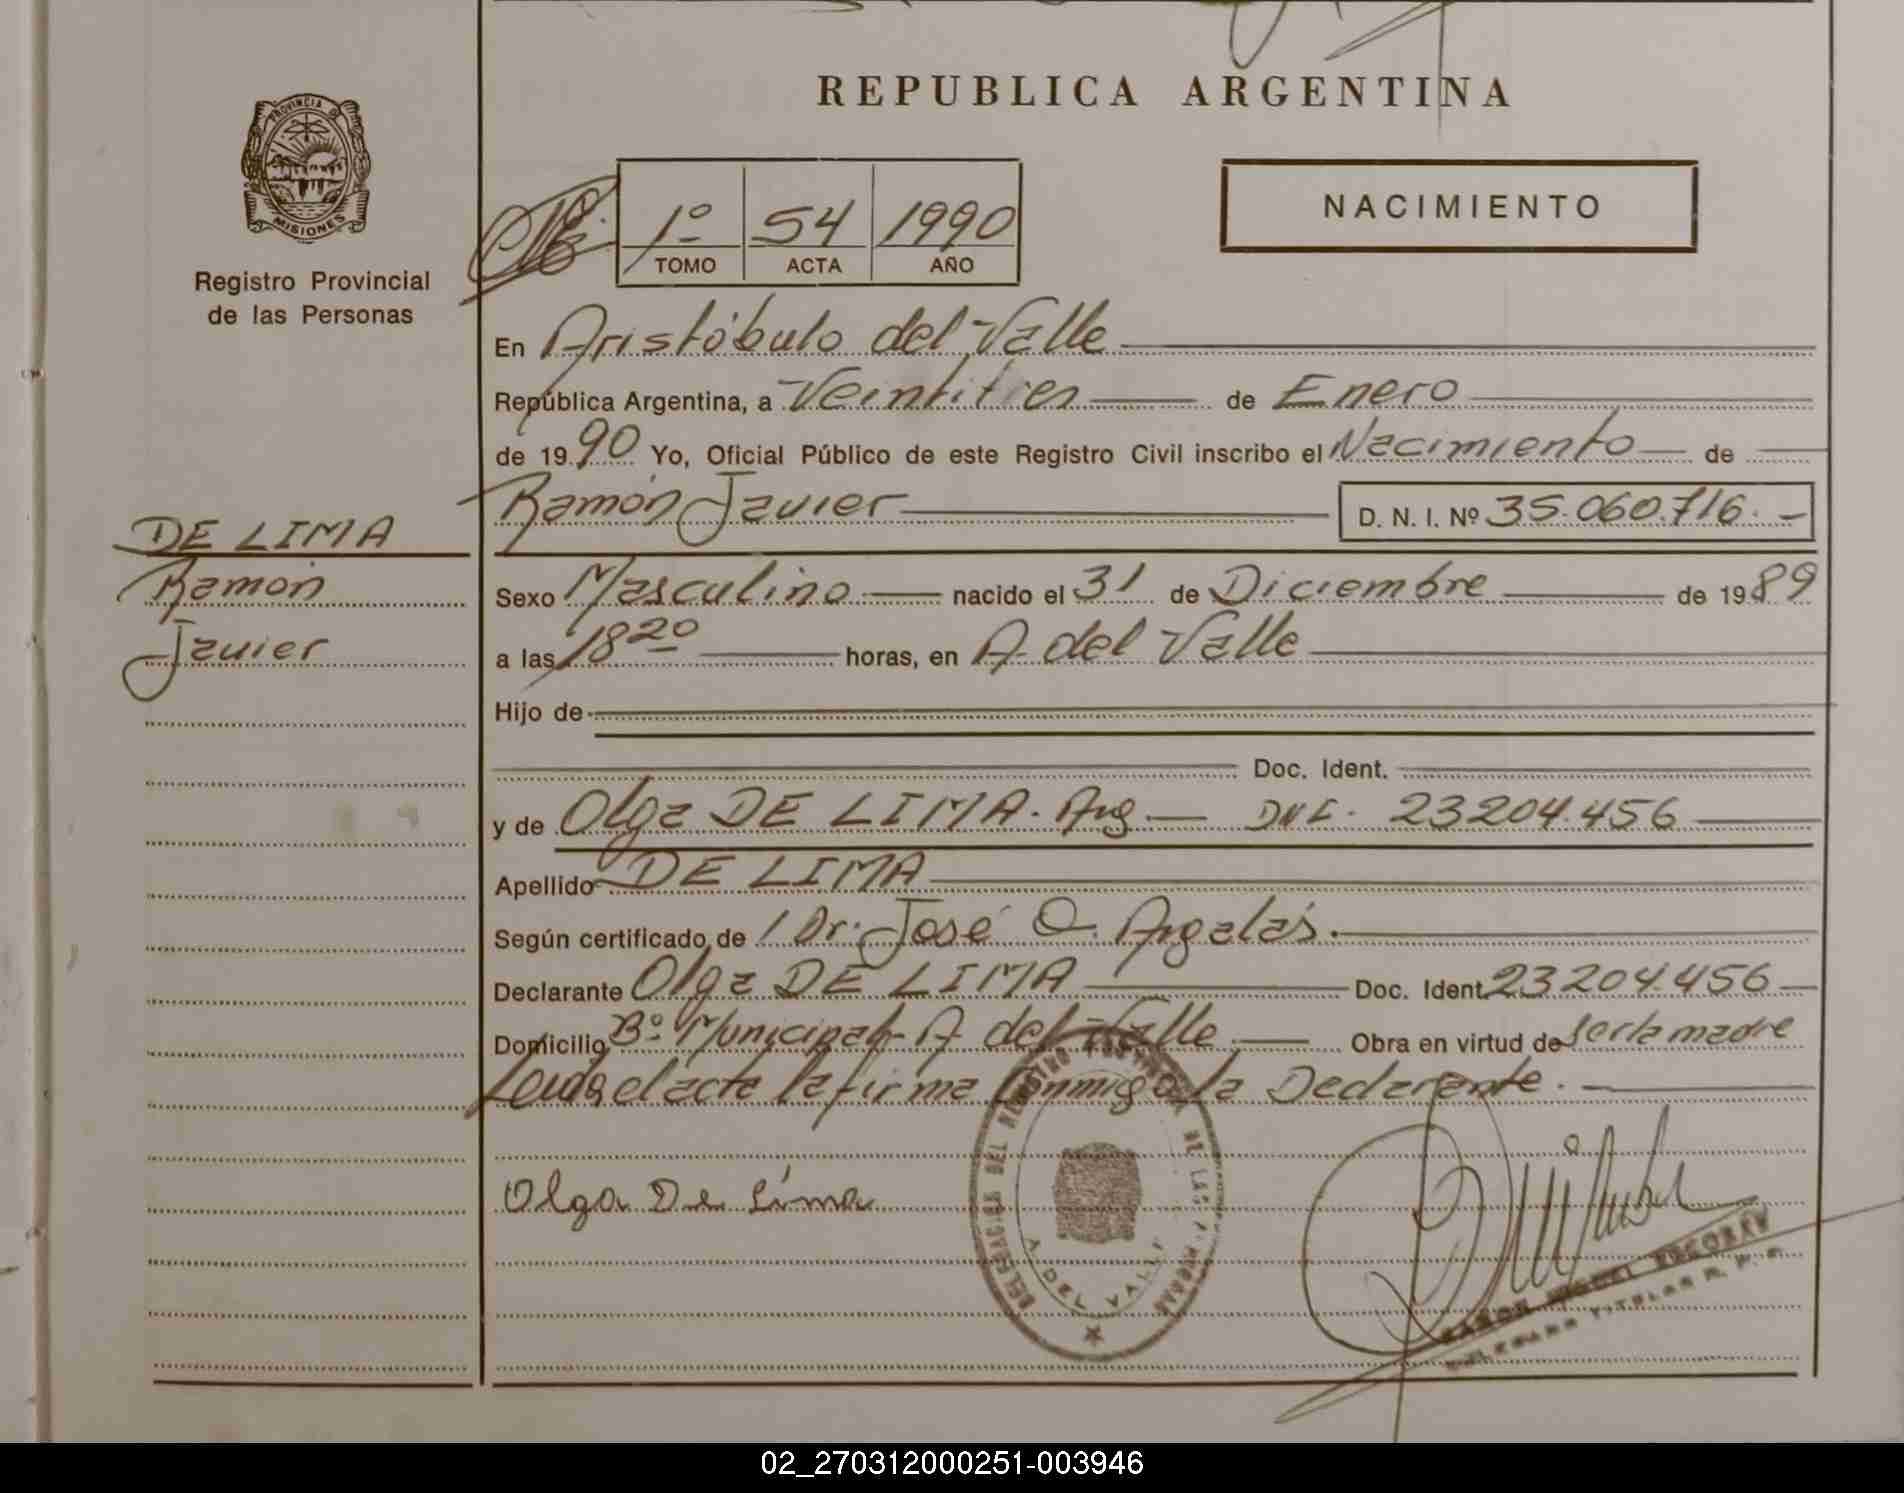 REPUBLICA ARGENTINA
PROVINCIA DE MISIONES
Registro Provincial
de las Personas
1º 54 1990
TOMO ACTA AÑO
NACIMIENTO
En Aristóbulo del Valle
República Argentina, a Veintitres de Enero
de 1990 Yo, Oficial Público de este Registro Civil inscribo el Nacimiento de
Ramón Javier D. N. I. Nº 35.060.716.-
DE LIMA
Ramón
Javier
Sexo Masculino nacido el 31 de Diciembre de 1989
a las 18 20 horas, en A. del Valle
Hijo de
Doc. Ident.
y de Olga DE LIMA. Arg DNI. 23204.456
Apellido DE LIMA
Según certificado de Dr. José O. Argalás.
Declarante Olga DE LIMA Doc. Ident. 23204.456
Domicilio Bº Municipal- A del Valle Obra en virtud de ser la madre
Leída el acta la firma conmigo la Declarante.
Olga De Lima
DELEGACION DEL REGISTRO PROVINCIAL DE LAS PERSONAS
A. DEL VALLE
TITULAR R. P. P.
02_270312000251-003946